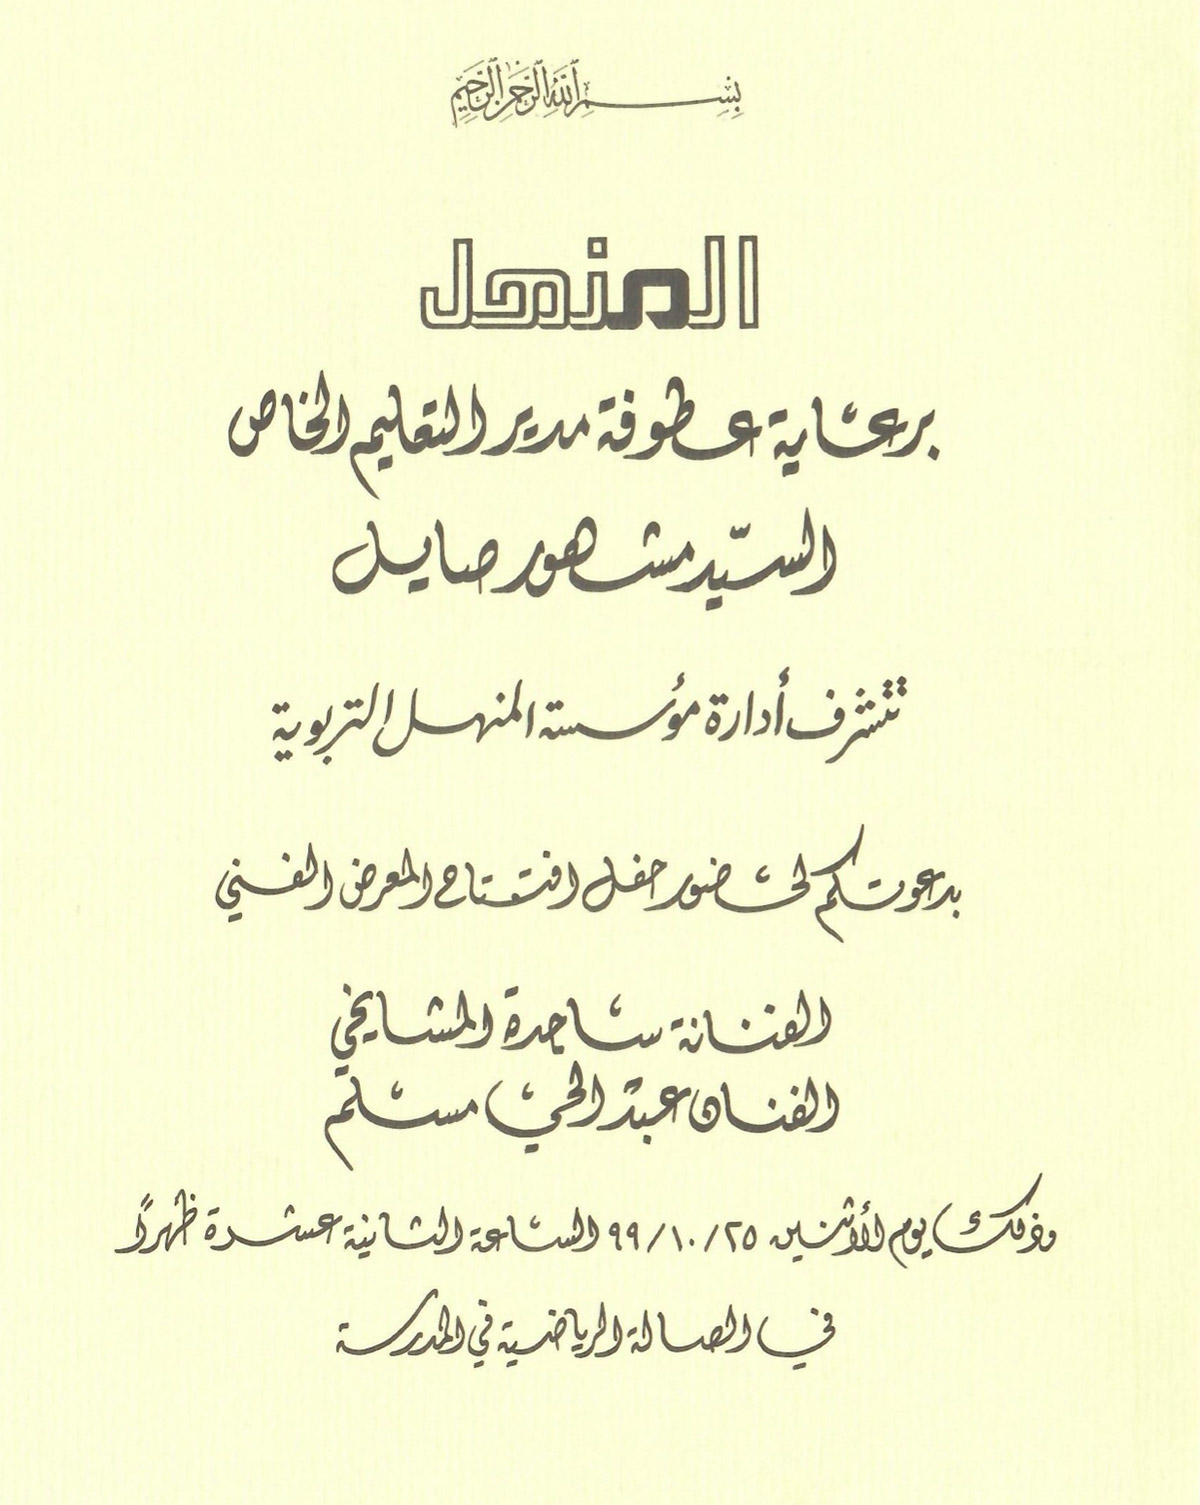 بسم الله الرحمن الرحيم
المنهل
برعاية عطوفة مدير التعليم الخاص
السيّد مشهور صايل
تتشرف أدارة مؤسسة المنهل التربوية
بدعوتكم لحضور حفل افتتاح المعرض الفني
الفنانة ساجدة المشايخي
الفنان عبد الحي مسلم
وذلك يوم الأثنين ٢٥/١٠/٩٩ الساعة الثانية عشرة ظهراً
في الصالة الرياضية في المدرسة